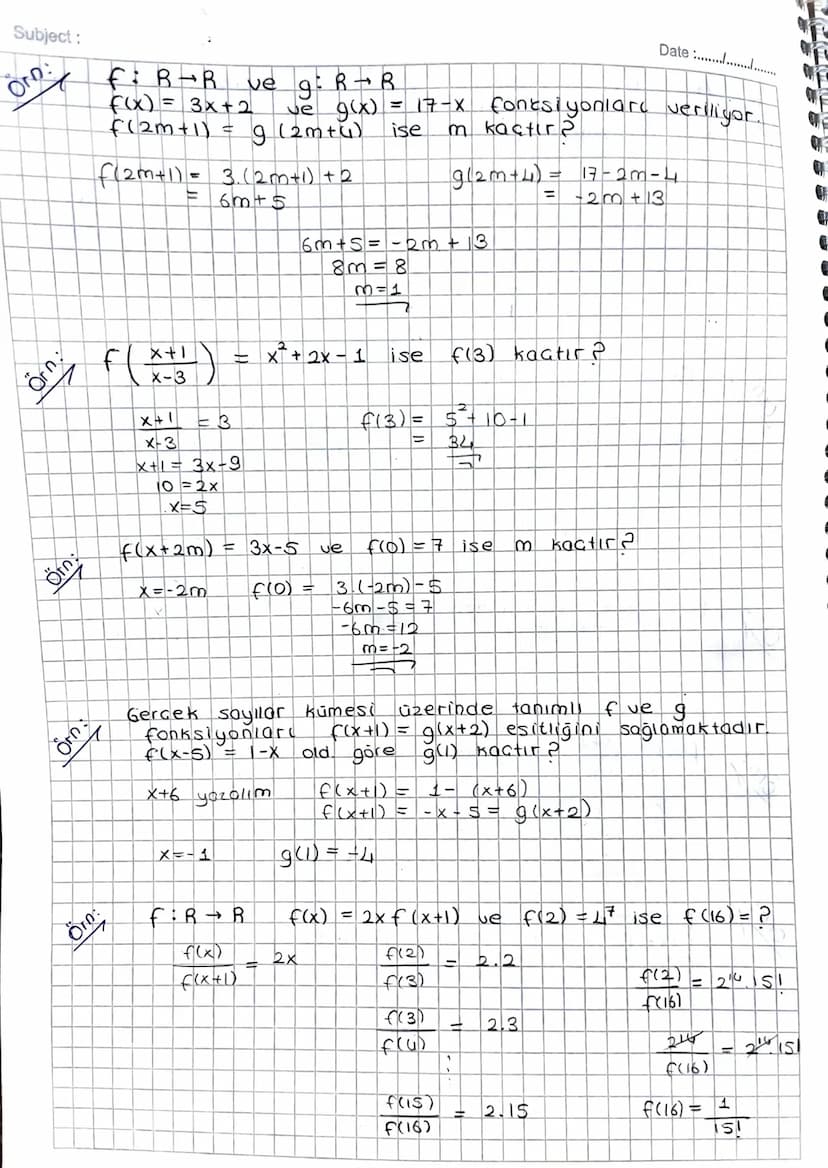 Subject :
Date :......./......./.......
Örn: f : R→R ve g: R→R
f(x) = 3x+2 ve g(x) = 17-x fonksiyonları veriliyor.
f(2m+1) = g (2m+4) ise m kaçtır?
f(2m+1) = 3.(2m+1) +2
= 6m+5
g(2m+4) = 17-2m-4
= -2m +13
6m+5 = -2m + 13
8m = 8
m=1
Örn: f((x+1)/(x-3)) = x²+2x-1 ise f(3) kaçtır?
(x+1)/(x-3) = 3
x+1 = 3x-9
10 = 2x
x=5
f(3) = 5²+ 10-1
= 34
Örn: f(x+2m) = 3x-5 ve f(0) = 7 ise m kaçtır?
x=-2m f(0) = 3.(-2m)-5
-6m-5=7
-6m=12
m=-2
Örn: Gercek sayılar kümesi üzerinde tanımlı f ve g
fonksiyonları f(x+1) = g(x+2) esitliğini sağlamaktadır.
f(x-5) = 1-x old. göre g(1) kaçtır?
x+6 yazalım f(x+1) = 1- (x+6)
f(x+1) = -x-5 = g(x+2)
x=-1 g(1) = -4
Örn: f : R→R f(x) = 2x f(x+1) ve f(2) = 4⁷ ise f(16) = ?
f(x)/f(x+1) = 2x
f(2)/f(3) = 2.2
f(3)/f(4) = 2.3
⋮
f(15)/f(16) = 2.15
f(2)/f(16) = 2¹⁴.15!
2¹⁴/f(16) = 2¹⁴.15!
f(16) = 1/15!